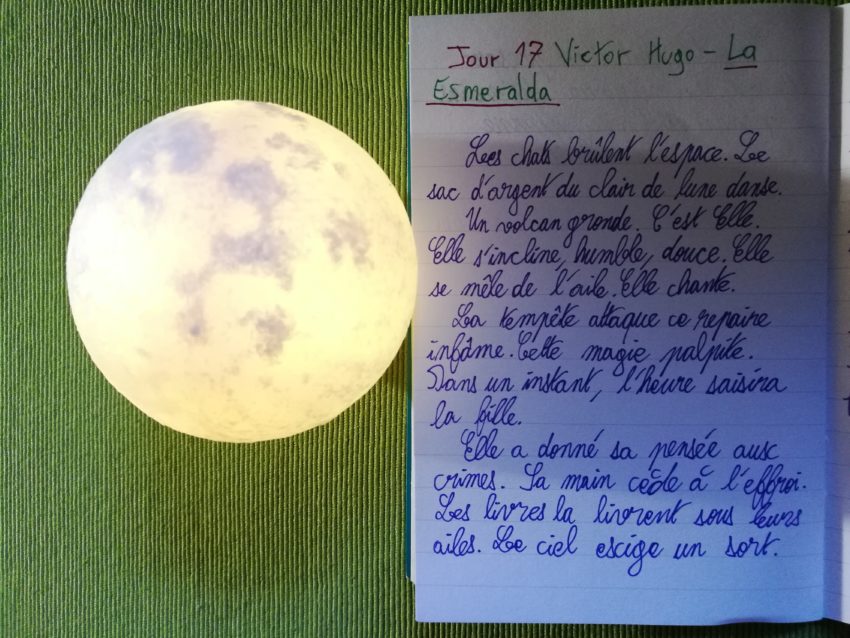 Jour 17 Victor Hugo - La
Esmeralda
Les chats brûlent l'espace. Le
sac d'argent du clair de lune danse.
Un volcan gronde. C'est Elle.
Elle s'incline, humble, douce. Elle
se mêle de l'aile. Elle chante.
La tempête attaque ce repaire
infâme. Cette magie palpite.
Dans un instant, l'heure saisira
la fille.
Elle a donné sa pensée aux
crimes. Sa main cède à l'effroi.
Les livres la livrent sous leurs
ailes. Le ciel exige un sort.